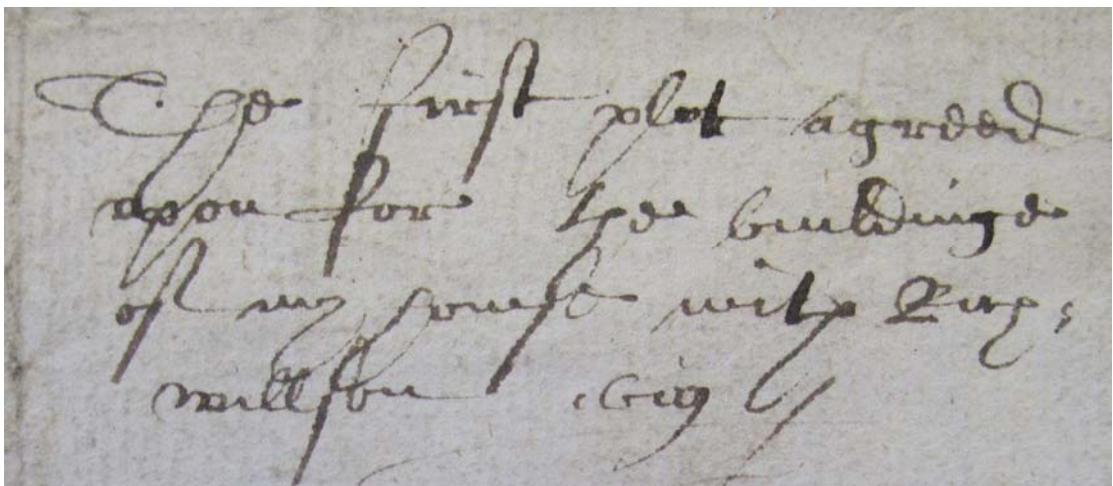 The first plot agreed
upon for the buildinge
of my howse with Rich:
willson